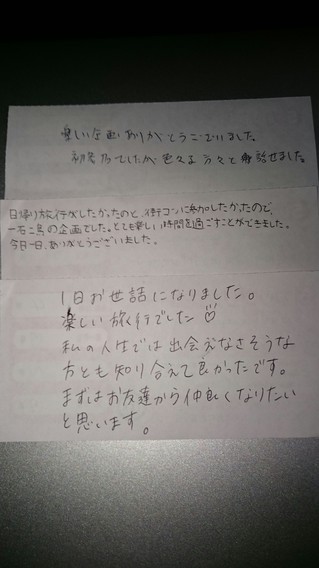 楽しい企画ありがとうございました。
初参加でしたが色々な方々と話せました。
日帰り旅行がしたかったのと、街コンに参加したかったので、
一石二鳥の企画でした。とても楽しい時間を過ごすことができました。
今日一日、ありがとうございました。
1日お世話になりました。
楽しい旅行でした
私の人生では出会えなさそうな
方とも知り合えて良かったです。
まずはお友達から仲良くなりたい
と思います。